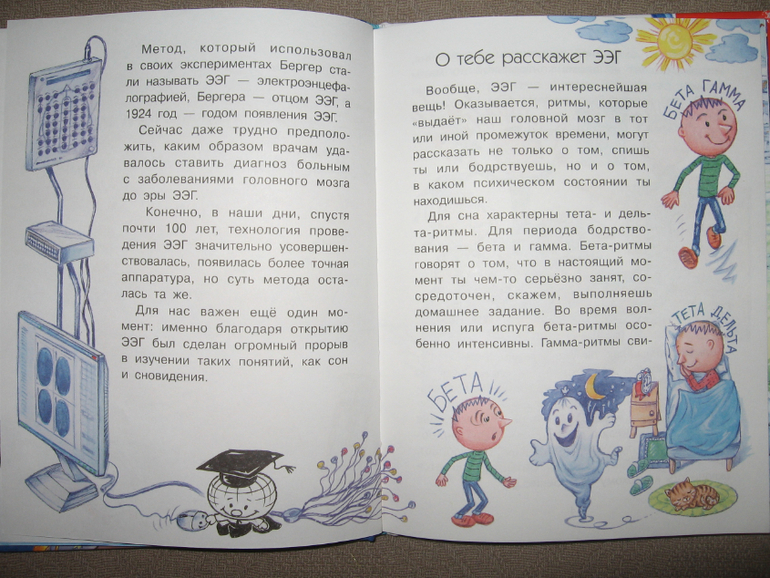 Метод, который использовал
в своих экспериментах Бергер ста-
ли называть ЭЭГ — электроэнцефа-
лографией, Бергера — отцом ЭЭГ, а
1924 год — годом появления ЭЭГ.
Сейчас даже трудно предполо-
жить, каким образом врачам уда-
валось ставить диагноз больным
с заболеваниями головного мозга
до эры ЭЭГ.
Конечно, в наши дни, спустя
почти 100 лет, технология прове-
дения ЭЭГ значительно усовершен-
ствовалась, появилась более точная
аппаратура, но суть метода оста-
лась та же.
Для нас важен ещё один мо-
мент: именно благодаря открытию
ЭЭГ был сделан огромный прорыв
в изучении таких понятий, как сон
и сновидения.
О тебе расскажет ЭЭГ
Вообще, ЭЭГ — интереснейшая
вещь! Оказывается, ритмы, которые
«выдаёт» наш головной мозг в тот
или иной промежуток времени, могут
рассказать не только о том, спишь
ты или бодрствуешь, но и о том,
в каком психическом состоянии ты
находишься.
Для сна характерны тета- и дель-
та-ритмы. Для периода бодрство-
вания — бета и гамма. Бета-ритмы
говорят о том, что в настоящий мо-
мент ты чем-то серьёзно занят, со-
средоточен, скажем, выполняешь
домашнее задание. Во время вол-
нения или испуга бета-ритмы осо-
бенно интенсивны. Гамма-ритмы сви-
БЕТА ГАММА
ТЕТА ДЕЛЬТА
БЕТА